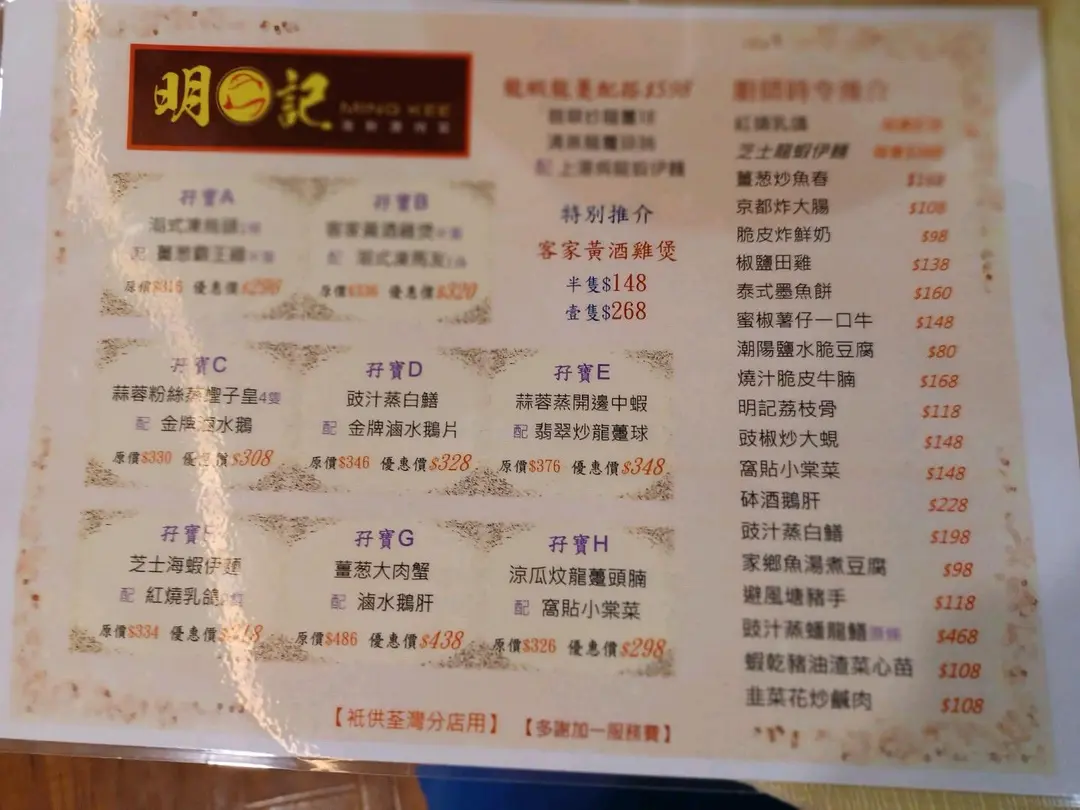 明記
MING KEE
龍蝦龍躉配搭$598
翡翠炒龍躉球
清蒸龍躉頭腩
配 上湯焗龍蝦伊麵
特別推介
客家黃酒雞煲
半隻$148
壹隻$268
孖寶A
配 薑葱霸王雞
原價$316 優惠價$298
孖寶B
客家黃酒雞煲半隻
配 潮式凍馬友
原價$336 優惠價$320
孖寶C
蒜蓉粉絲蒸蟶子皇4隻
配 金牌滷水鵝
原價$330 優惠價$308
孖寶D
豉汁蒸白鱔
配 金牌滷水鵝片
原價$346 優惠價$328
孖寶E
蒜蓉蒸開邊中蝦
配 翡翠炒龍躉球
原價$376 優惠價$348
孖寶F
芝士海蝦伊麵
配 紅燒乳鴿
原價$334 優惠價
孖寶G
薑葱大肉蟹
配 滷水鵝肝
原價$486 優惠價$438
孖寶H
涼瓜炆龍躉頭腩
配 窩貼小棠菜
原價$326 優惠價$298
廚師時令推介
紅燒乳鴿
芝士龍蝦伊麵
薑葱炒魚春 $168
京都炸大腸 $108
脆皮炸鮮奶 $98
椒鹽田雞 $138
泰式墨魚餅 $160
蜜椒薯仔一口牛 $148
潮陽鹽水脆豆腐 $80
燒汁脆皮牛腩 $168
明記荔枝骨 $118
豉椒炒大蜆 $148
窩貼小棠菜 $148
砵酒鵝肝 $228
豉汁蒸白鱔 $198
家鄉魚湯煮豆腐 $98
避風塘豬手 $118
豉汁蒸蟠龍鱔原條 $468
蝦乾豬油渣菜心苗 $108
韭菜花炒鹹肉 $108
【祇供荃灣分店用】 【多謝加一服務費】